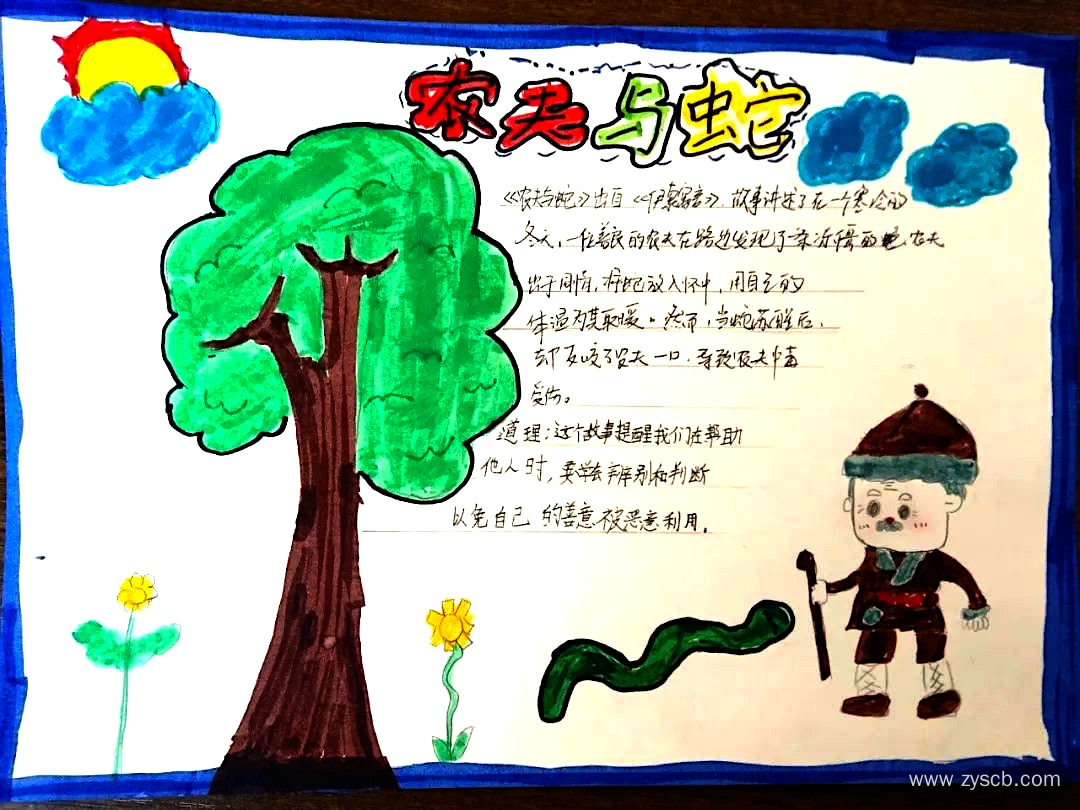 农夫与蛇
《农夫与蛇》出自《伊索寓言》,故事讲述了在一个寒冷的
冬天,一位善良的农夫在路边发现了条冻僵的蛇,农夫
出于同情,将蛇放入怀中,用自己的
体温为其取暖。然而,当蛇苏醒后,
却反咬了农夫一口,导致农夫中毒
受伤。
道理:这个故事提醒我们在帮助
他人时,要学会辨别和判断
以免自己的善意被恶意利用。
www.zyscb.com